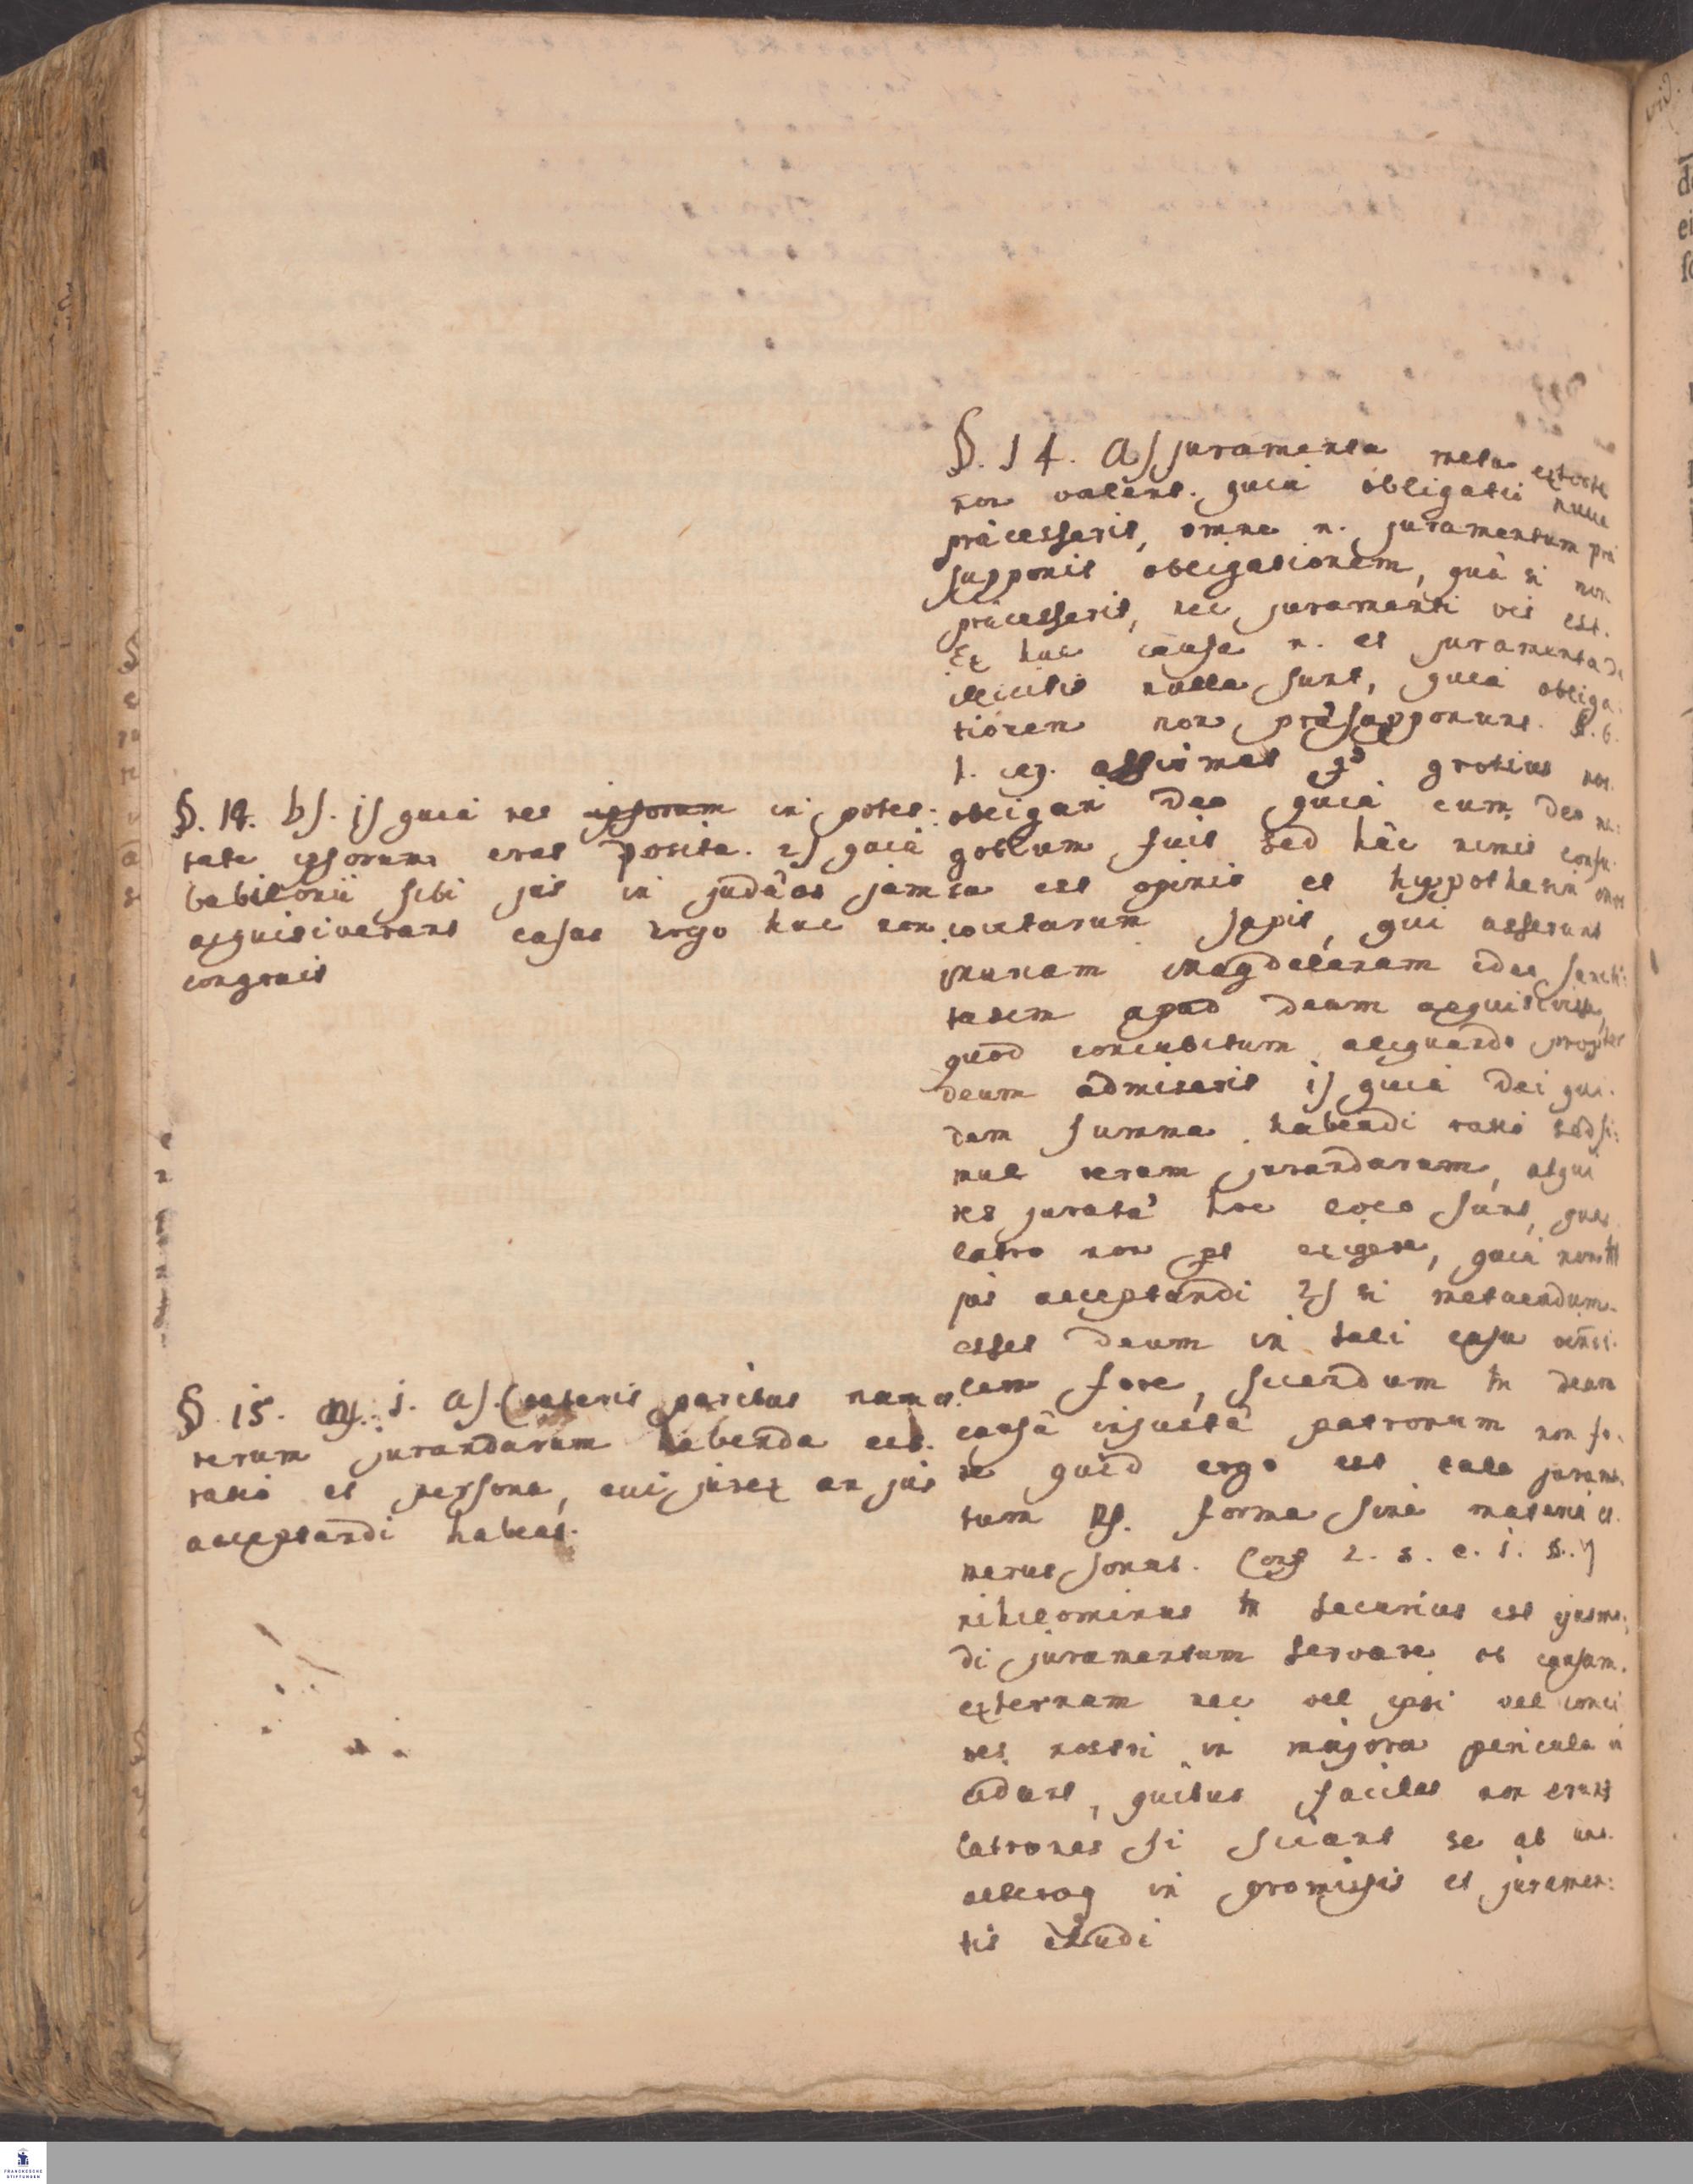 §. 14. a) juramenta metu extorta
non valent. quia obligatio nulla
præcesserit, omne n. juramentum præ
supponit obligationem, quæ si non
præcesserit, nec juramenti vis est.
Ex hac causa n. et juramenta de
illicitis nulla sunt, quia obliga
tionem non præsupponunt. §. 6.
h. cap. grotius
obligari Deo quia cum Deo ne:
gotium fuit sed hæc nimis
ta est opinio et hyppothesin
sapit, qui asserunt
Magdalenam ideo sancti:
tatem apud Deum aequisivisse,
quod concubitum aliquando propter
Deum admiserit 1) quia Dei qui.
dem summa habendi ratio sed si:
mul rerum jurandarum, atqui
res juratæ hoc loco sunt, quas
latro non pt exigere, quia non
jus acceptandi 2) si metuendum
esset Deum in tali casu
fore, sciendum tn Deum
causæ injustæ patronum non fo.
re quid ergo est tale jurame.
tum Rs. forma sine materia et
merus sonus. Conf L. 2. c. 1. §. 9
nihilominus tn securius est ejusmo:
di juramentum servare ob causam
externam nec vel ipsi vel concì
ves nostri in majora pericula in
cidant, quibus faciles non erunt
latrones si sciant se ab uno
alteroq in promissis et juramen:
tis eludi
§. 14. b). 1) quia res ipsorum in potes:
tate ipsorum erat posita. 2) quia
babilonii sibi jus in judæos jam
aequisiverant casus ergo hac non
congruit
§. 15. n. 1. a). Cæteris paribus nam et
rerum jurandarum habenda est
ratio et persona, cui juret an jus
acceptandi habeat.
FRANCKESCHE
STIFTUNGEN